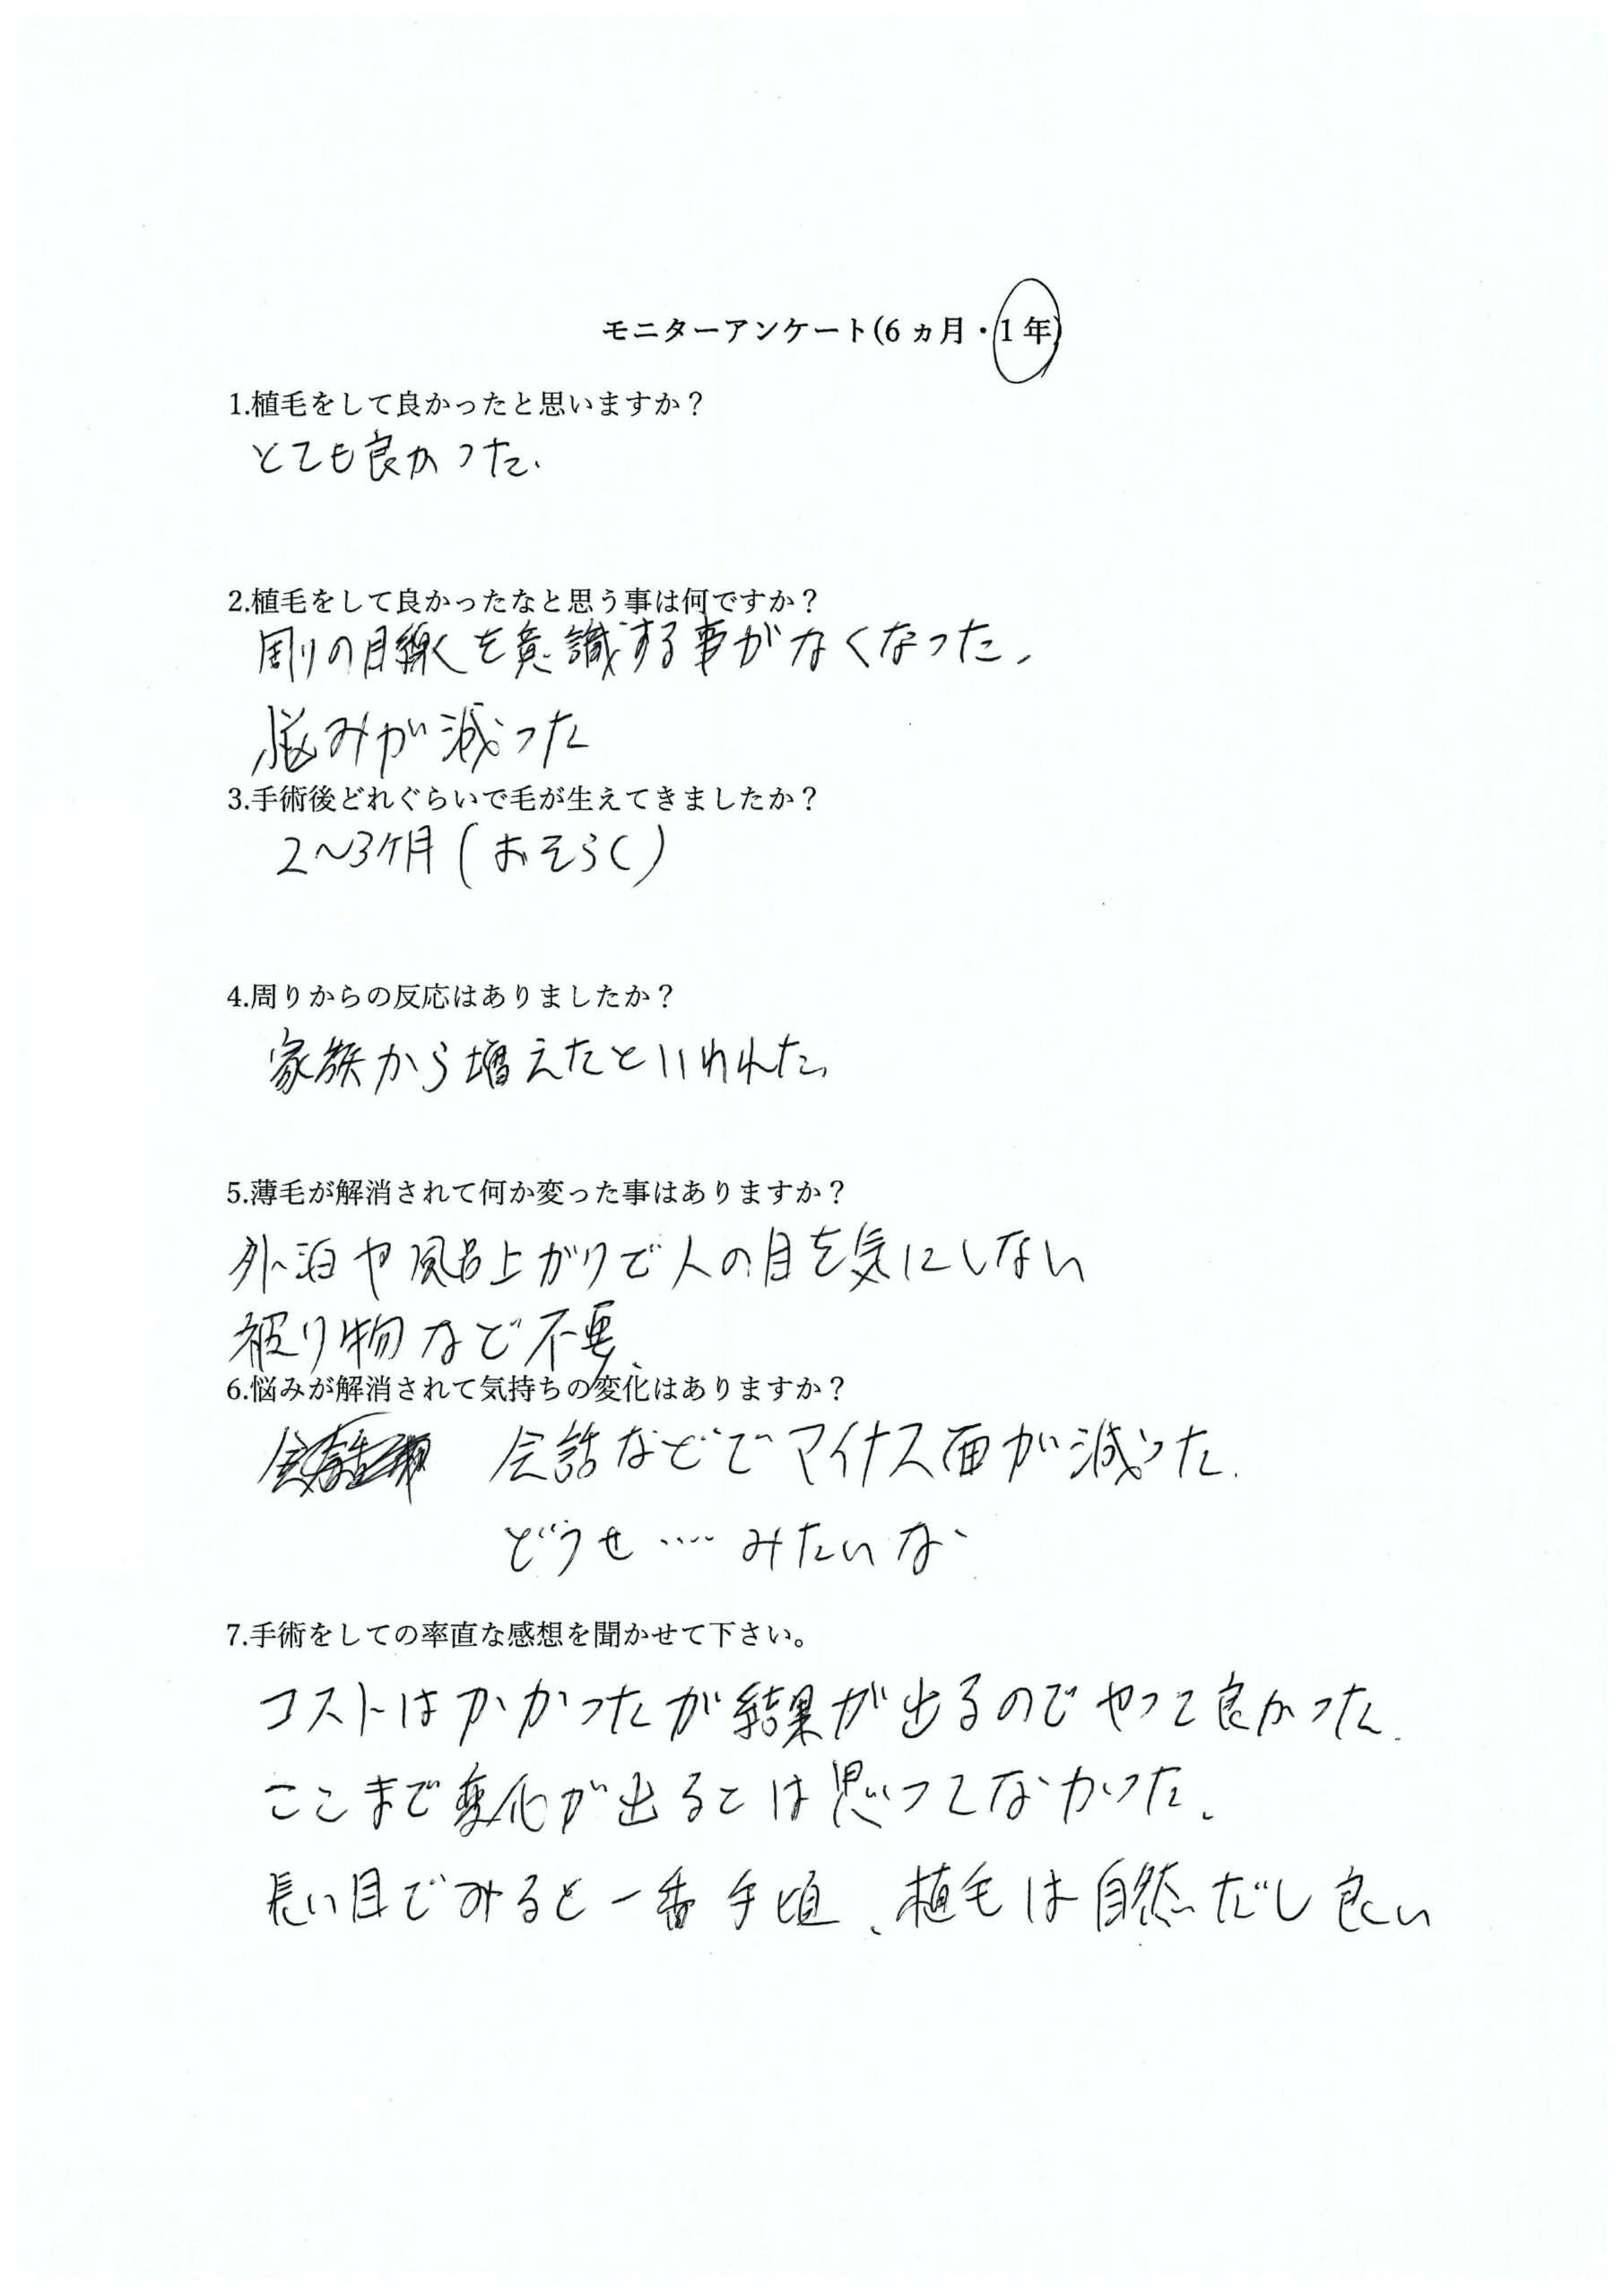 モニターアンケート(6ヵ月・1年)
1.植毛をして良かったと思いますか？
とても良かった.
2.植毛をして良かったなと思う事は何ですか？
周りの目線を意識する事がなくなった。
悩みが減った
3.手術後どれぐらいで毛が生えてきましたか？
2〜3ケ月(おそらく)
4.周りからの反応はありましたか？
家族から増えたといわれた。
5.薄毛が解消されて何か変った事はありますか？
外泊や風呂上がりで人の目を気にしない
被り物など不要、
6.悩みが解消されて気持ちの変化はありますか？
会話などでマイナス面が減った.
どうせ….みたいな
7.手術をしての率直な感想を聞かせて下さい。
コストはかかったが結果が出るのでやって良かった.
ここまで変化が出るとは思ってなかった、
長い目でみると一番手頃、植毛は自然だし良い